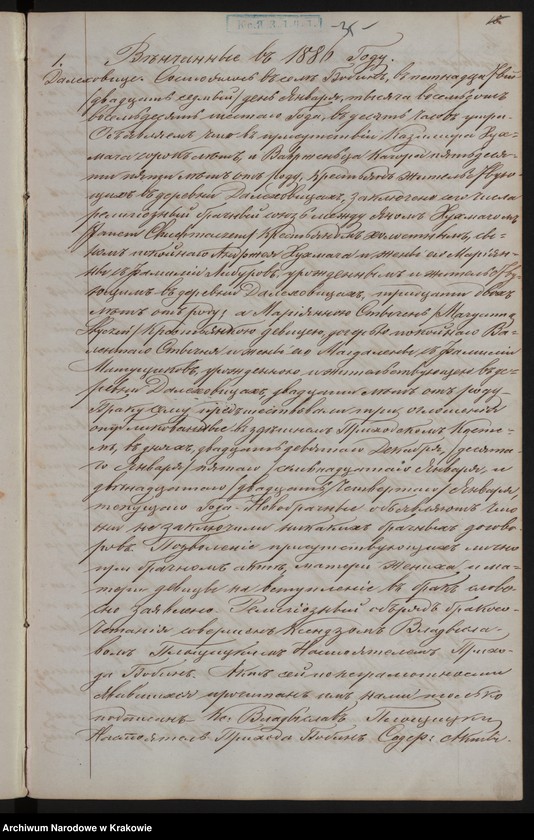 Вѣнчанные въ 1886 Году.
1.
Далеховице. Состоялось въ семъ Бобинѣ, въ пятнадца
/двадцать седьмый/ день Января, тысяча восемьсотъ
восемьдесятъ шестаго года, въ десять часовъ утра.
Объявляемъ, что въ присутствіи Казимира
сорока лѣтъ, и Вавржинца пятьдеся-
ти пяти лѣтъ отъ роду, крестьянъ житель-
въ деревни Далеховицахъ, заключенъ сего числа
религіозный брачный союзъ между Яномъ
крестьяниномъ холостымъ, сы-
номъ покойнаго Андржея и жены его Марій-
ны съ фамиліи урожденнымъ и жительству-
ющимъ въ деревни Далеховицахъ, тридцати двухъ
лѣтъ отъ роду; а Маріянною Стычень
крестьянкою девицею, дочерью покойнаго Ва-
лентаго Стычня и жены его Магдалены, съ фамиліи
урожденною и жительствующею въ де-
ревни Далеховицахъ, двадцати лѣтъ отъ роду.
Браку сему предшествовали три оглашенія
опубликованные въ здѣшнемъ Приходскомъ Косте-
лѣ, въ дняхъ, двадцать девятаго Декабря /десята-
го Января/ пятаго /семнадцатаго Января, и
двѣнадцатаго /двадцать четвертаго/ Января,
текущаго года. Новобрачные объявляютъ что
они не заключили никакихъ брачныхъ догово-
ровъ. Позволеніе присутствующихъ лично
при брачномъ актѣ, матери жениха и ма-
тери девицы на вступленіе въ бракъ слове-
сно заявлено. Религіозный обрядъ бракосо-
четанія совершенъ Ксендзомъ Владисла-
вомъ Настоятелемъ Прихо-
да Бобинъ. Актъ сей неграмотности
явившихся прочитанъ имъ нами только
подписанъ. Кс. Владиславъ
Настоятель Прихода Бобинъ Содер: Акты.
Archiwum Narodowe w Krakowie